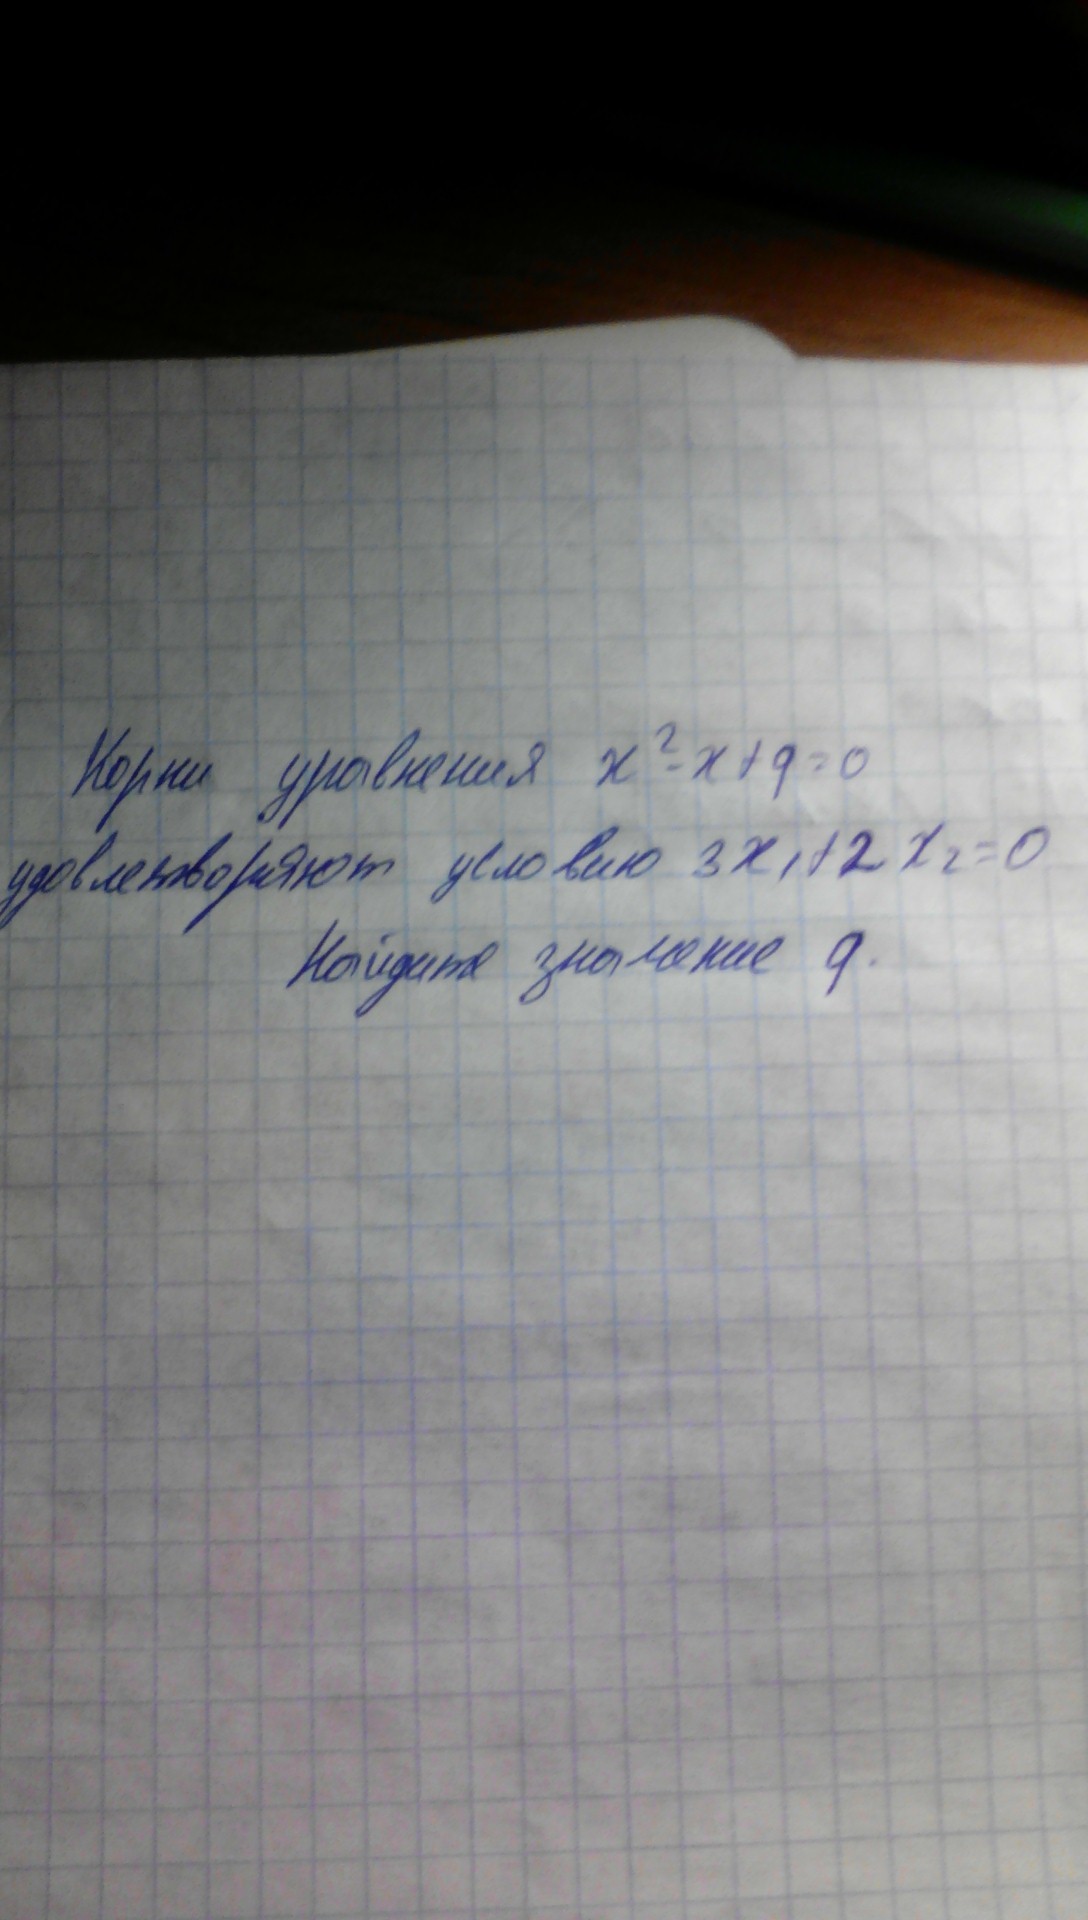 Корни уравнения x²-x+q=0
удовлетворяют условию 3x₁+2x₂=0
Найдите значение q.